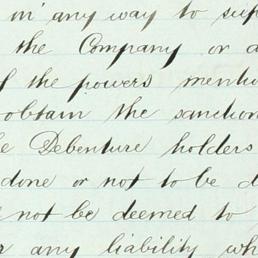 in any way to
the Company or
the powers
obtain the sanction
Debenture holders
done or not to be
not be deemed to
any liability